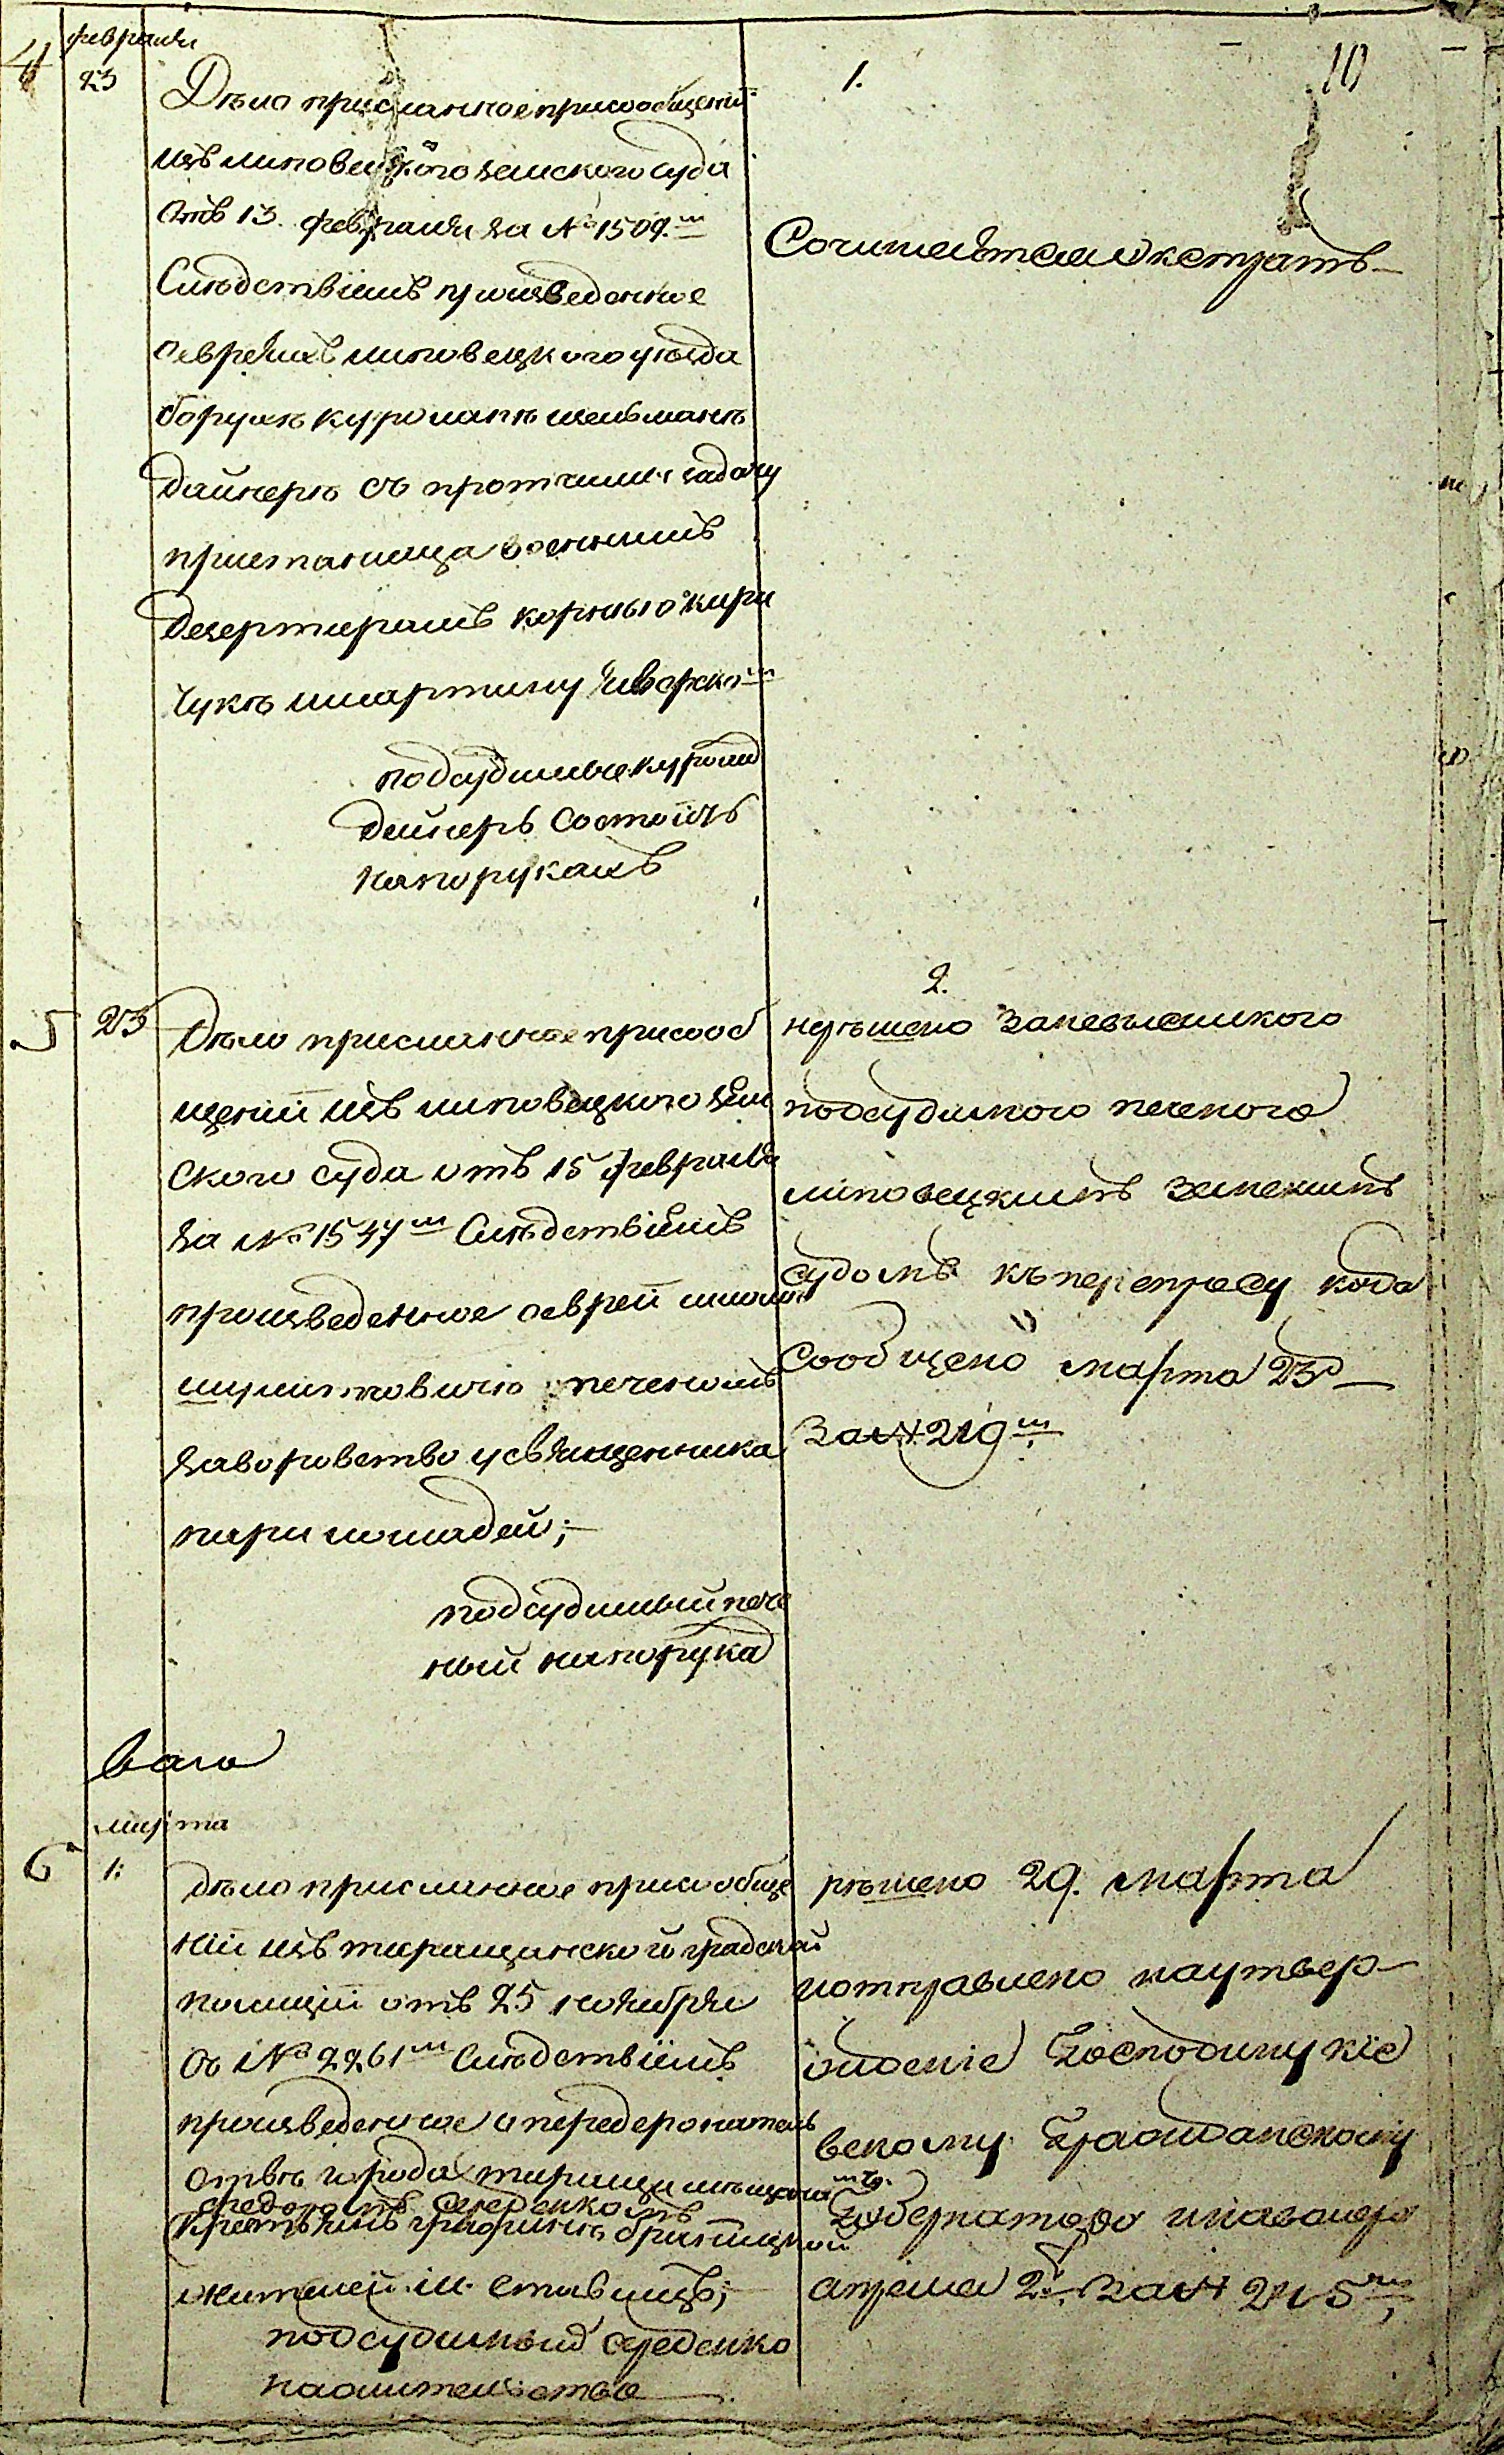 февраля
4
23
Дѣло присланное присообщеніи
изъ липовецкого земского суда
отъ 13. февраля за № 1509.м
Слѣдствіемъ произведенное
оевреяхъ липовецкого уѣзда
дайнерѣ съ протчими задачу
пристанища военнымъ
дезертирамъ корнѣю кири
чукѣ имартину
подсудимые
дейнеръ состоитъ
напорукахъ
1.
10
Сочиняется екстрактъ
5
23
Дѣло присланное присооб
щеніи изъ липовецкого зем
ского суда отъ 15 февраля
за № 1547м Слѣдствіемъ
произведенное оеврей
печеномъ
заворовство усвященника
пари лошадей;
подсудимый пече
ный напорука
2.
нерѣшено
подсудимого печеного
липовецкимъ земскимъ
судомъ къ перепросу кода
сообщено марта 23
За № 219м
марта
6
1:
дѣло присланное присообще
ніи изъ таращанской градской
полиціи отъ 25 ноября
съ № 2261м Слѣдствіемъ
произведенное опередержатель
ствѣ города таращи мѣщани
федоромъ середенкомъ
жителей м. ставищъ;
подсудимый середенко
нажительстве
рѣшено 29. марта
иотправлено наутвер
жденіе Господину кіе
вскому Гражданскому
Губернатору
апреля 2 За №